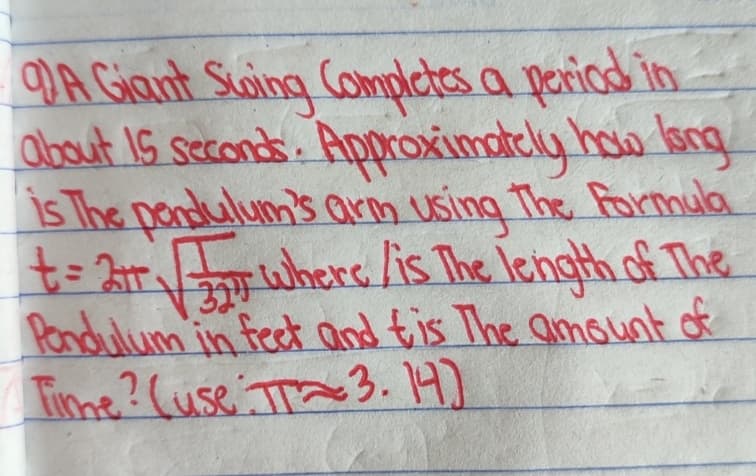 9) A Giant Swing Completes a period in
about 15 seconds. Approximately how long
is The pendulum's arm using The Formula
t = 2π √I/32 where l is The length of The
Pendulum in feet and t is The amount of
Time? (use: π ≈ 3.14)